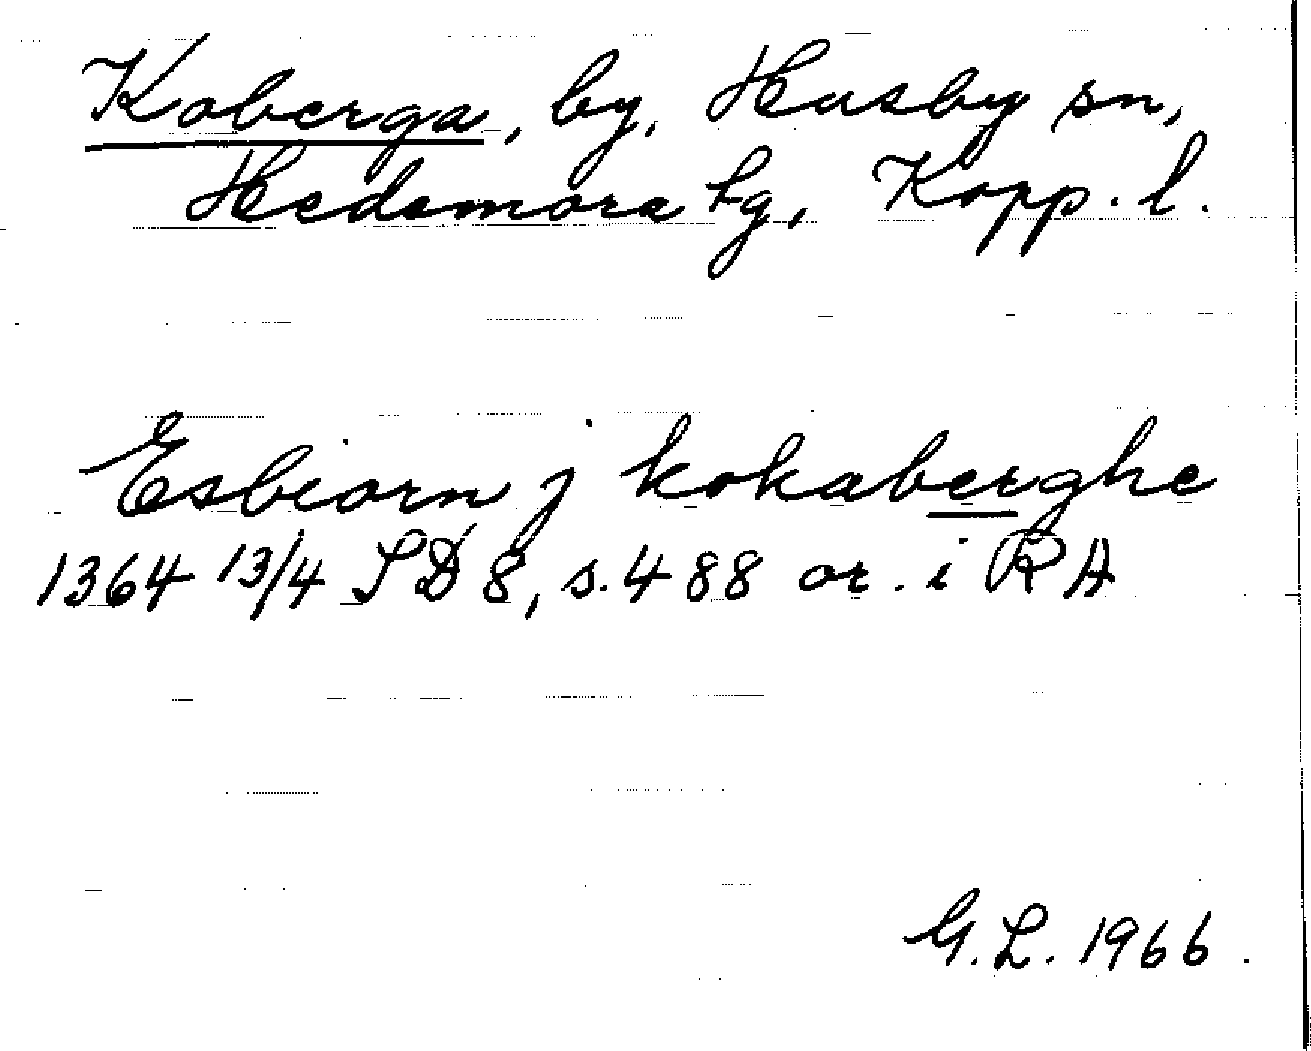 Koberga, by, Husby sn,
Hedemora tg, Kopp. l.
Esbiorn j kokaberghe
1364 13/4 SD 8, s. 488 or. i RA
G. L. 1966.